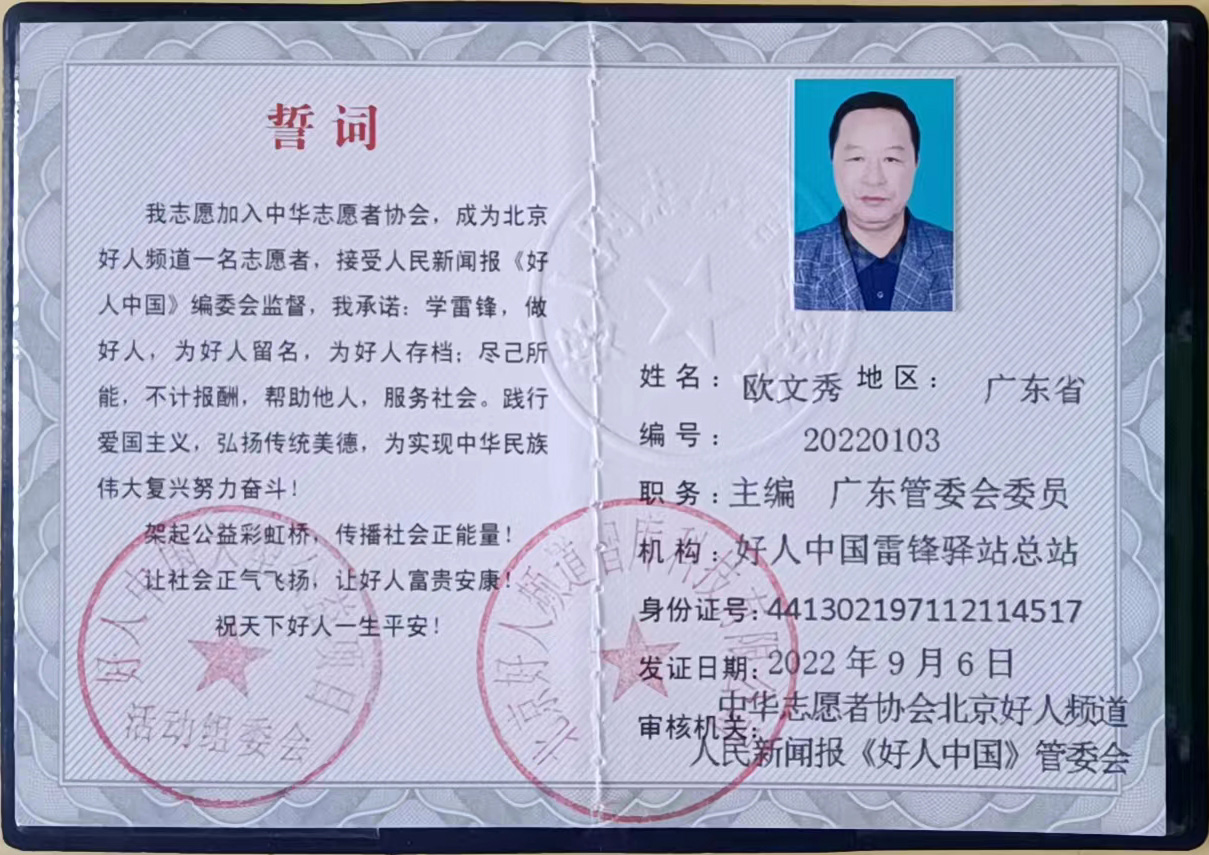 誓词
我志愿加入中华志愿者协会，成为北京
好人频道一名志愿者，接受人民新闻报《好
人中国》编委会监督，我承诺：学雷锋，做
好人，为好人留名，为好人存档；尽己所
能，不计报酬，帮助他人，服务社会。践行
爱国主义，弘扬传统美德，为实现中华民族
伟大复兴努力奋斗！
架起公益彩虹桥，传播社会正能量！
让社会正气飞扬，让好人富贵安康！
祝天下好人一生平安！
好人中国
项目
活动组委会
姓名：欧文秀 地区：广东省
编号：20220103
职务：主编 广东管委会委员
机构：好人中国雷锋驿站总站
身份证号：441302197112114517
发证日期：2022年9月6日
审核机关：中华志愿者协会北京好人频道
人民新闻报《好人中国》管委会
北京好人频道智库科技有限